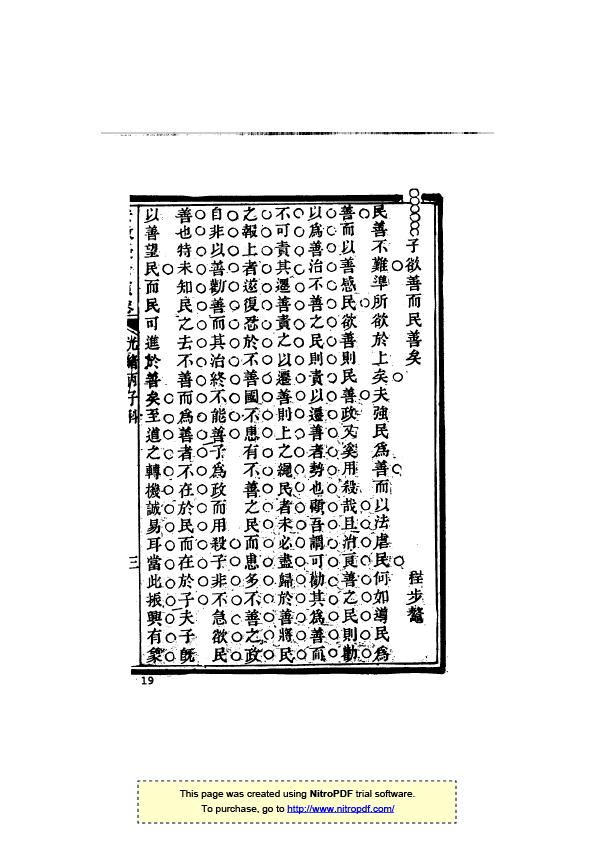 子欲善而民善矣 程步鼇
民善不難準所欲於上矣夫強民為善而以法虐民何如導民為
善而以善感民欲善則民善政又奚用殺哉且治頁善之民則勸
以為善治不善之民則責以遷善者勢也顧吾謂可勸其為善而
不可責其遷善責之以遷善則上之繩民者未必盡歸於善將民
之報上者遂復悉於不善國不患有不善之民而患多不善之政
自非以善勸善而其治終不能善子為政而用殺子非不急欲民
善也特未知民之去不善而為善者不在於民而在於子夫子旣
以善望民而民可進於善矣至道之轉機誠易耳當此振興有象
光緒丙子科 三
19
This page was created using NitroPDF trial software.
To purchase, go to http://www.nitropdf.com/